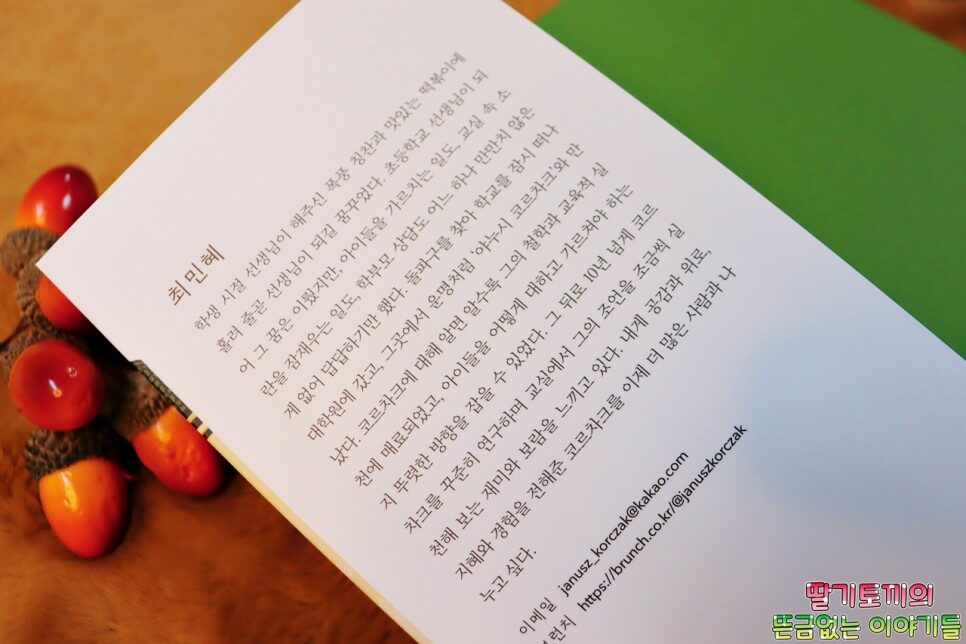 최민혜
학생 시절 선생님이 해주신 폭풍 칭찬과 맛있는 떡볶이에
홀려 줄곧 선생님이 되길 꿈꾸었다. 초등학교 선생님이 되
어 그 꿈은 이뤘지만, 아이들을 가르치는 일도, 교실 속 소
란을 잠재우는 일도, 학부모 상담도 어느 하나 만만치 않은
게 없어 답답하기만 했다. 돌파구를 찾아 학교를 잠시 떠나
대학원에 갔고, 그곳에서 운명처럼 '야누시 코르차크'와 만
났다. 코르차크에 대해 알면 알수록 그의 철학과 교육적 실
천에 매료되었고, 아이들을 어떻게 대하고 가르쳐야 하는
지 뚜렷한 방향을 잡을 수 있었다. 그 뒤로 10년 넘게 코르
차크를 꾸준히 연구하며 교실에서 그의 조언을 조금씩 실
천해 보는 재미와 보람을 느끼고 있다. 내게 공감과 위로,
지혜와 경험을 전해준 코르차크를 이제 더 많은 사람과 나
누고 싶다.
이메일 janusz_korczak@kakao.com
브런치 https://brunch.co.kr/@januszkorczak
딸기토끼의
뜬금없는 이야기들